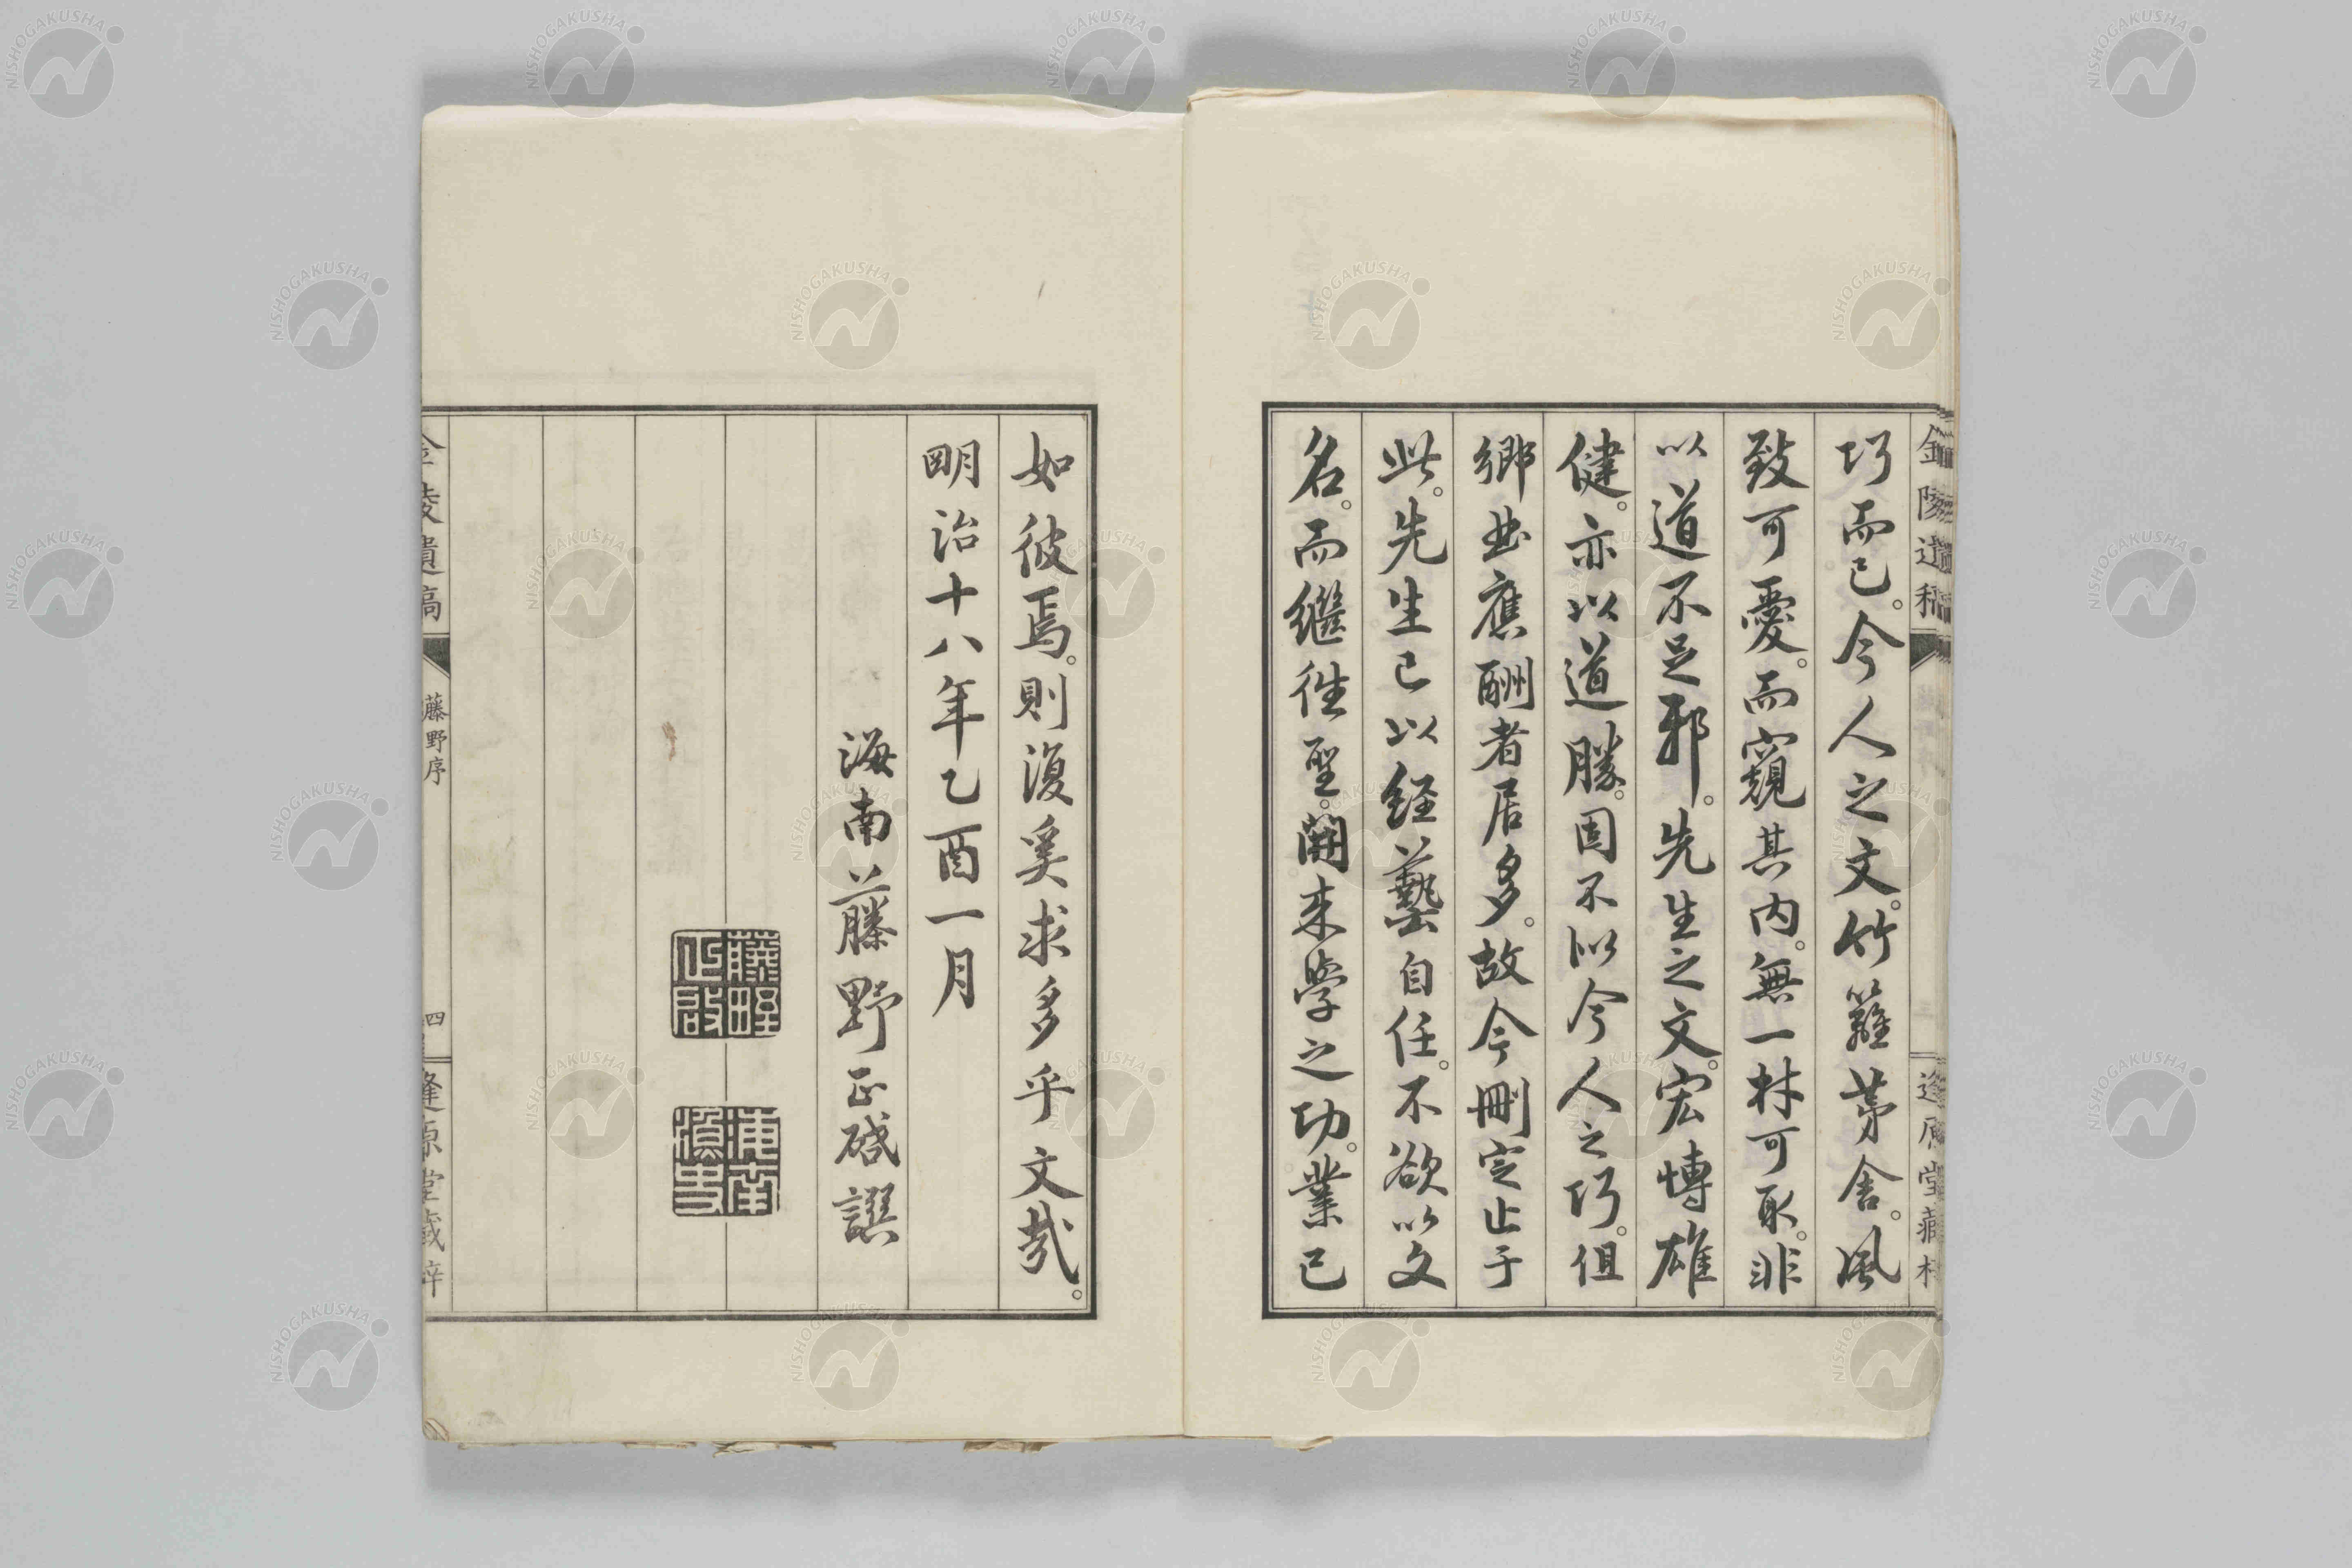 巧而已。今人之文。竹籬茅舍。風
致可愛。而窺其内。無一材可取。非
以道不足邪。先生之文。宏博雄
健。亦以道勝。固不以今人之巧。但
鄉曲應酬者居多。故今刪定止于
此。先生已以經藝自任。不欲以文
名。而繼徃聖。開来學之功。業已
如彼焉。則復奚求多乎文哉。
明治十八年乙酉一月
海南藤野正啓譔
藤野正啟
海南
金陵遺稿
藤野序
四
逢原堂藏梓
金陵遺稿
逢原堂藏梓
NISHOGAKUSHA